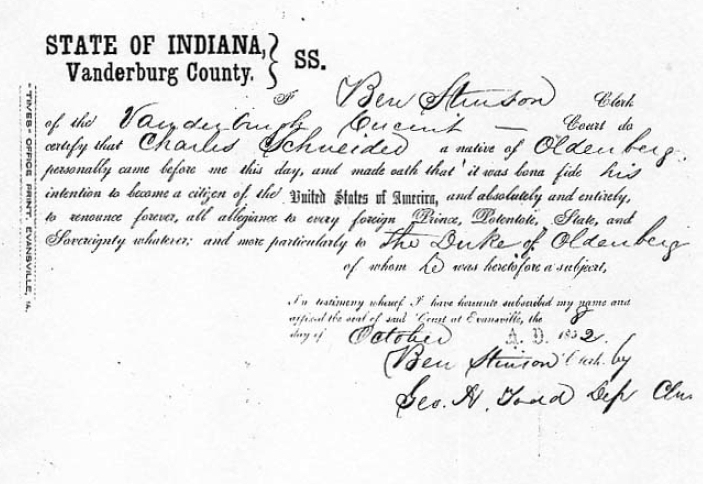 STATE OF INDIANA,
Vanderburg County. } SS.
I Ben Stinson Clerk
of the Vanderburgh Circuit — Court do
certify that Charles Schneider a native of Oldenberg
personally came before me this day, and made oath that it was bona fide his
intention to become a citizen of the United States of America, and absolutely and entirely,
to renounce forever, all allegiance to every foreign Prince, Potentate, State, and
Sovereignty whatever; and more particularly to The Duke of Oldenberg
of whom he was heretofore a subject,
In testimony whereof I have hereunto subscribed my name and
affixed the seal of said Court at Evansville, the 8
day of October A. D. 1852.
Ben Stinson Clerk. by
Geo. H. Todd Dep Clk.
"TIMES" OFFICE PRINT, EVANSVILLE,